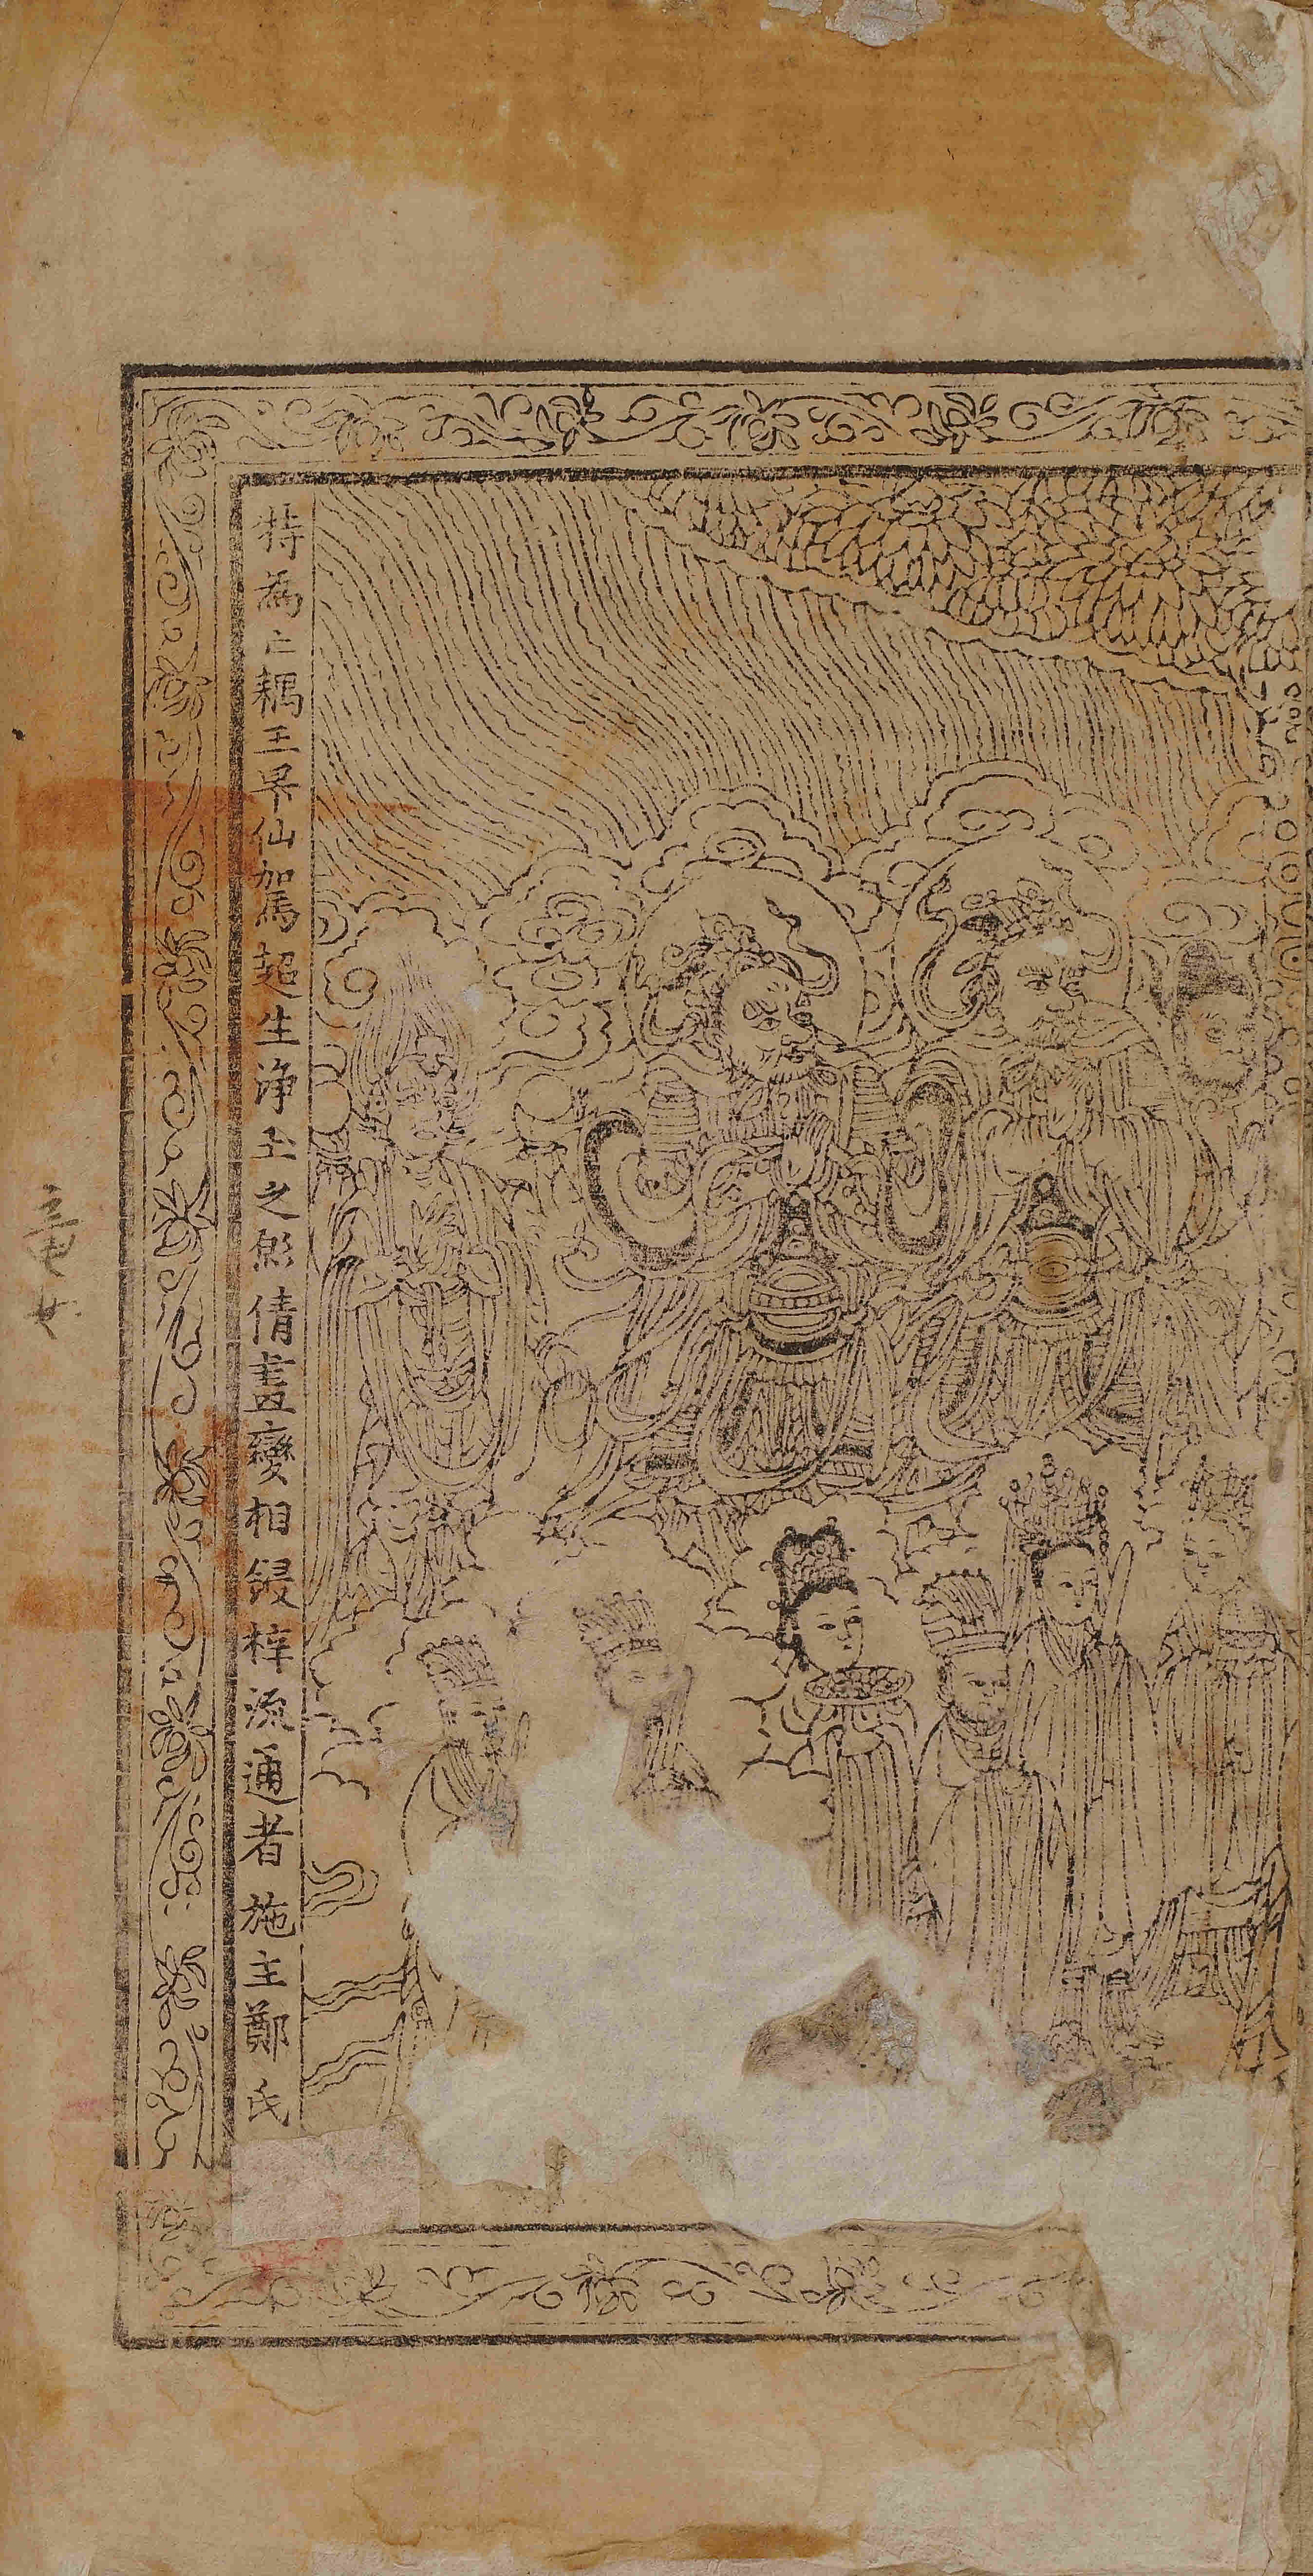 特爲亡耦王昇仙駕超生淨土之願倩畫變相鋟梓流通者施主鄭氏